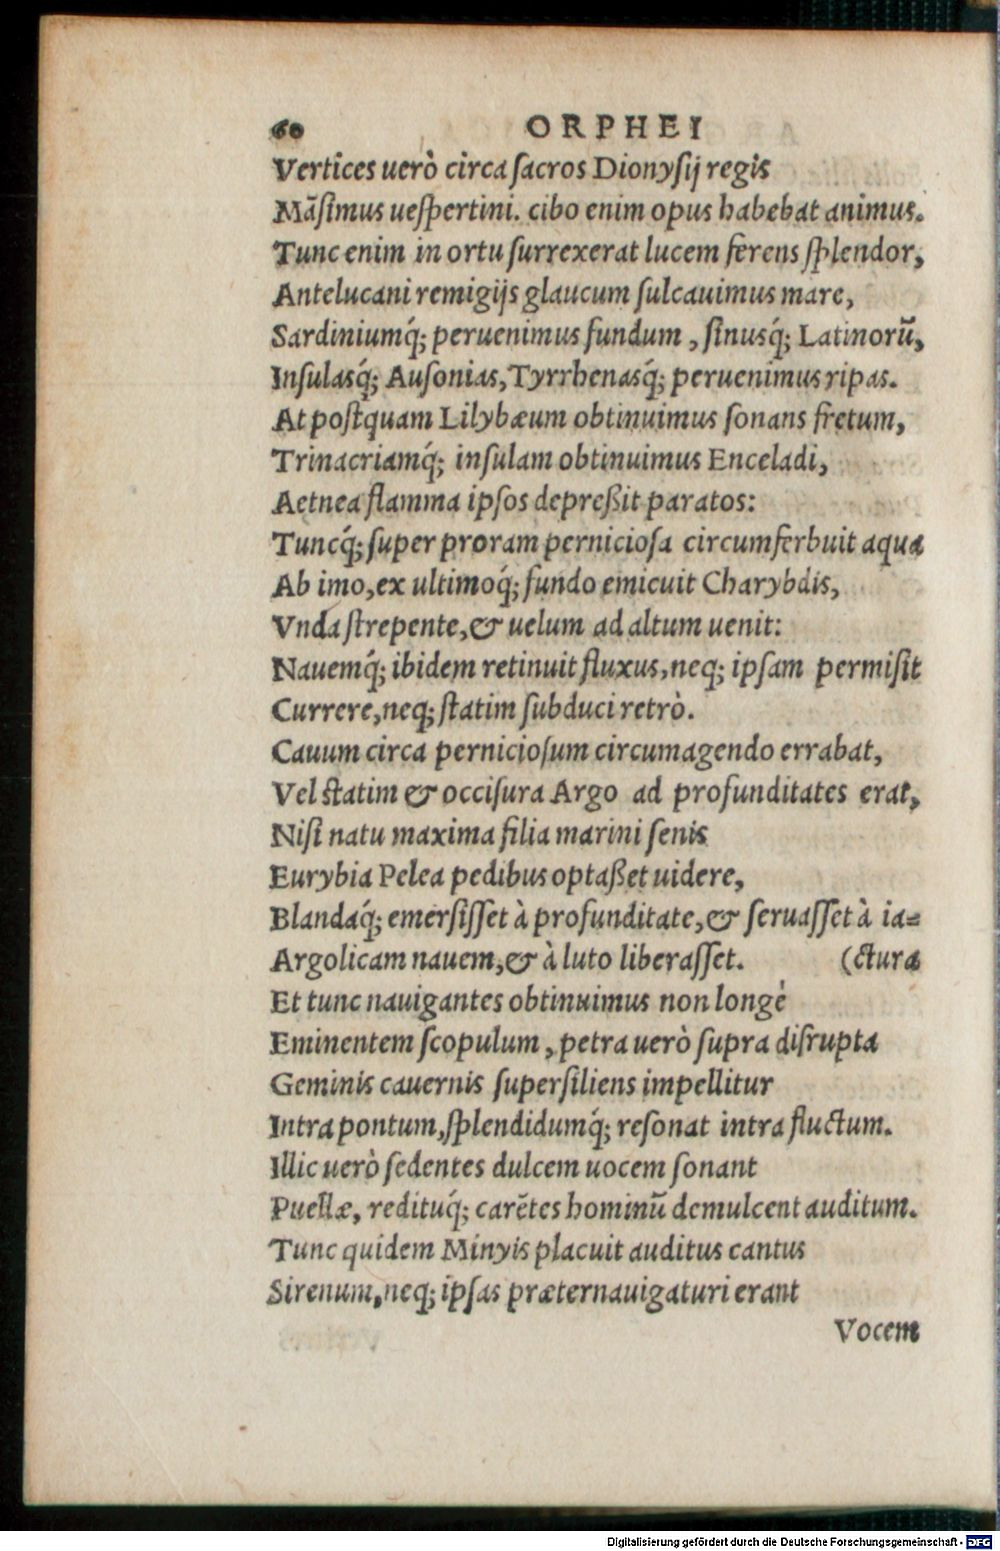 60 ORPHEI
Vertices uerò circa ſacros Dionyſij regis
Māſimus ueſpertini. cibo enim opus habebat animus.
Tunc enim in ortu ſurrexerat lucem ferens ſplendor,
Antelucani remigijs glaucum ſulcauimus mare,
Sardiniumq́; peruenimus fundum, ſinusq́; Latinorū,
Inſulasq́; Auſonias, Tyrrhenasq́; peruenimus ripas.
At poſtquam Lilybæum obtinuimus ſonans fretum,
Trinacriamq́; inſulam obtinuimus Enceladi,
Aetnea flamma ipſos depreßit paratos:
Tuncq́; ſuper proram pernicioſa circumferbuit aqua
Ab imo, ex ultimoq́; fundo emicuit Charybdis,
Vnda ſtrepente, & uelum ad altum uenit:
Nauemq́; ibidem retinuit fluxus, neq; ipſam permiſit
Currere, neq; ſtatim ſubduci retrò.
Cauum circa pernicioſum circumagendo errabat,
Vel ſtatim & occiſura Argo ad profunditates erat,
Niſi natu maxima filia marini ſenis
Eurybia Pelea pedibus optaßet uidere,
Blandaq́; emerſiſſet à profunditate, & ſeruaſſet à ia=
Argolicam nauem, & à luto liberaſſet. (ctura
Et tunc nauigantes obtinuimus non longè
Eminentem ſcopulum, petra uerò ſupra diſrupta
Geminis cauernis ſuperſiliens impellitur
Intra pontum, ſplendidumq́; reſonat intra fluctum.
Illic uerò ſedentes dulcem uocem ſonant
Puellæ, redituq́; carētes hominū demulcent auditum.
Tunc quidem Minyis placuit auditus cantus
Sirenum, neq; ipſas præternauigaturi erant
Vocem
Digitalisierung gefördert durch die Deutsche Forschungsgemeinschaft - DFG